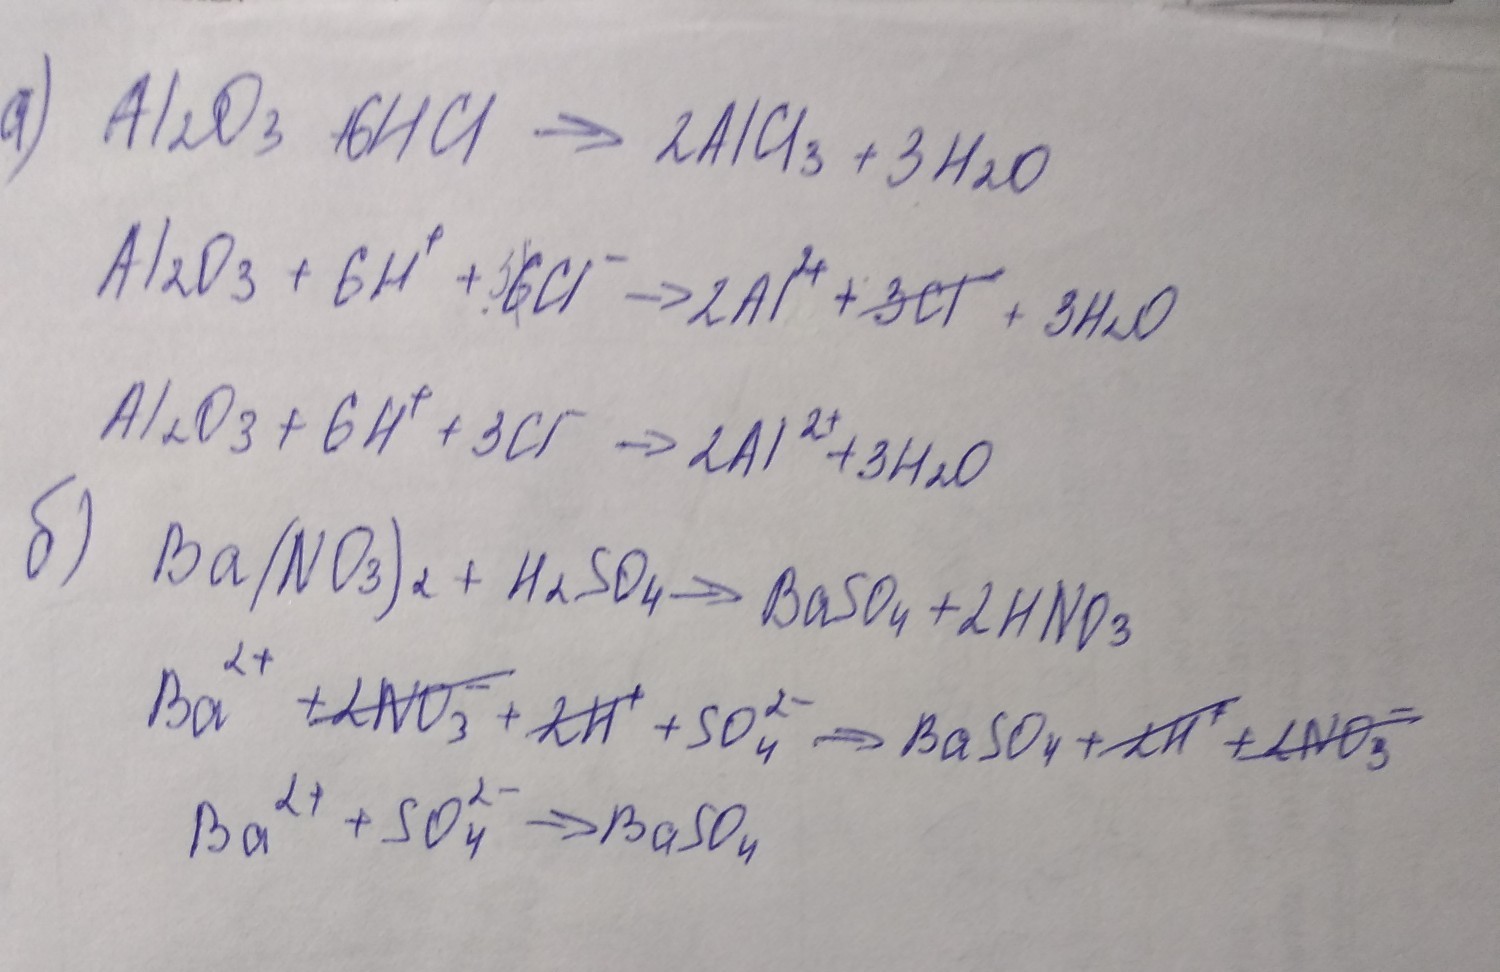 а) Al₂O₃ + 6HCl → 2AlCl₃ + 3H₂O
Al₂O₃ + 6H⁺ + 6Cl⁻ → 2Al²⁺ + 3Cl⁻ + 3H₂O
Al₂O₃ + 6H⁺ + 3Cl⁻ → 2Al²⁺ + 3H₂O
б) Ba(NO₃)₂ + H₂SO₄ → BaSO₄ + 2HNO₃
Ba²⁺ + 2NO₃⁻ + 2H⁺ + SO₄²⁻ → BaSO₄ + 2H⁺ + 2NO₃⁻
Ba²⁺ + SO₄²⁻ → BaSO₄